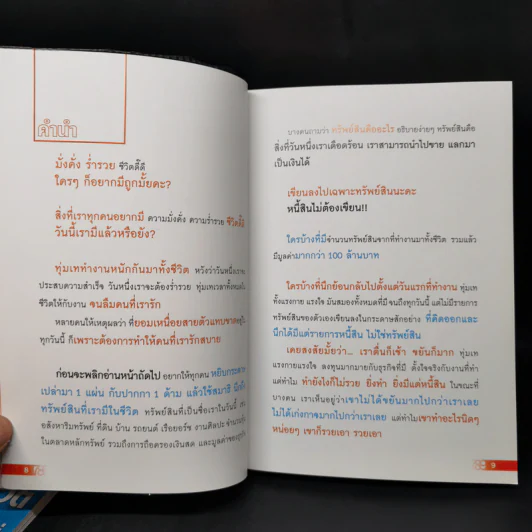 คำนำ
มั่งคั่ง ร่ำรวย ชีวิตดี๊ดี
ใครๆ ก็อยากมีถูกมั้ยคะ?
สิ่งที่เราทุกคนอยากมี ความมั่งคั่ง ความร่ำรวย ชีวิตดี๊ดี
วันนี้เรามีแล้วหรือยัง?
ทุ่มเททำงานหนักกันมาทั้งชีวิต หวังว่าวันหนึ่งเราจะ
ประสบความสำเร็จ วันหนึ่งเราจะต้องร่ำรวย ทุ่มเทเวลาทั้งหมดใน
ชีวิตให้กับงาน จนลืมคนที่เรารัก
หลายคนให้เหตุผลว่า ที่ยอมเหนื่อยสายตัวแทบขาดอยู่
ทุกวันนี้ ก็เพราะต้องการทำให้คนที่เรารักสบาย
ก่อนจะพลิกอ่านหน้าถัดไป อยากให้ทุกคน หยิบกระดาษ
เปล่ามา 1 แผ่น กับปากกา 1 ด้าม แล้วใช้สมาธิ นึกถึง
ทรัพย์สินที่เรามีในชีวิต ทรัพย์สินที่เป็นชื่อเราในวันนี้ เช่น
อสังหาริมทรัพย์ ที่ดิน บ้าน รถยนต์ เรือยอร์ช งานศิลปะ จำนวนหุ้น
ในตลาดหลักทรัพย์ รวมถึงการถือครองเงินสด และมูลค่าของธุรกิจ
8
บางคนถามว่า ทรัพย์สินคืออะไร อธิบายง่ายๆ ทรัพย์สินคือ
สิ่งที่วันหนึ่งเราเดือดร้อน เราสามารถนำไปขาย แลกมา
เป็นเงินได้
เขียนลงไปเฉพาะทรัพย์สินนะคะ
หนี้สินไม่ต้องเขียน!!
ใครบ้างที่มีจำนวนทรัพย์สินจากที่ทำงานมาทั้งชีวิต รวมแล้ว
มีมูลค่ามากกว่า 100 ล้านบาท
ใครบ้างที่นึกย้อนกลับไปตั้งแต่วันแรกที่ทำงาน ทุ่มเท
ทั้งแรงกาย แรงใจ มันสมองทั้งหมดที่มี จนถึงทุกวันนี้ แต่ไม่มีรายการ
ทรัพย์สินของตัวเองเขียนลงในกระดาษสักอย่าง ที่คิดออกและ
นึกได้มีแต่รายการหนี้สิน ไม่ใช่ทรัพย์สิน
เคยสงสัยมั้ยว่า... เราตื่นก็เช้า ขยันก็มาก ทุ่มเท
แรงกายแรงใจ ลงทุนมากมายกับธุรกิจที่มี ตั้งใจจริงกับงานที่ทำ
แต่ทำไม ทำยังไงก็ไม่รวย ยิ่งทำ ยิ่งมีแต่หนี้สิน ในขณะที่
บางคน เราเห็นอยู่ว่าเขาไม่ได้ขยันมากไปกว่าเราเลย
ไม่ได้เก่งกาจมากไปกว่าเราเลย แต่ทำไมเขาทำอะไรนิดๆ
หน่อยๆ เขาก็รวยเอา รวยเอา
9